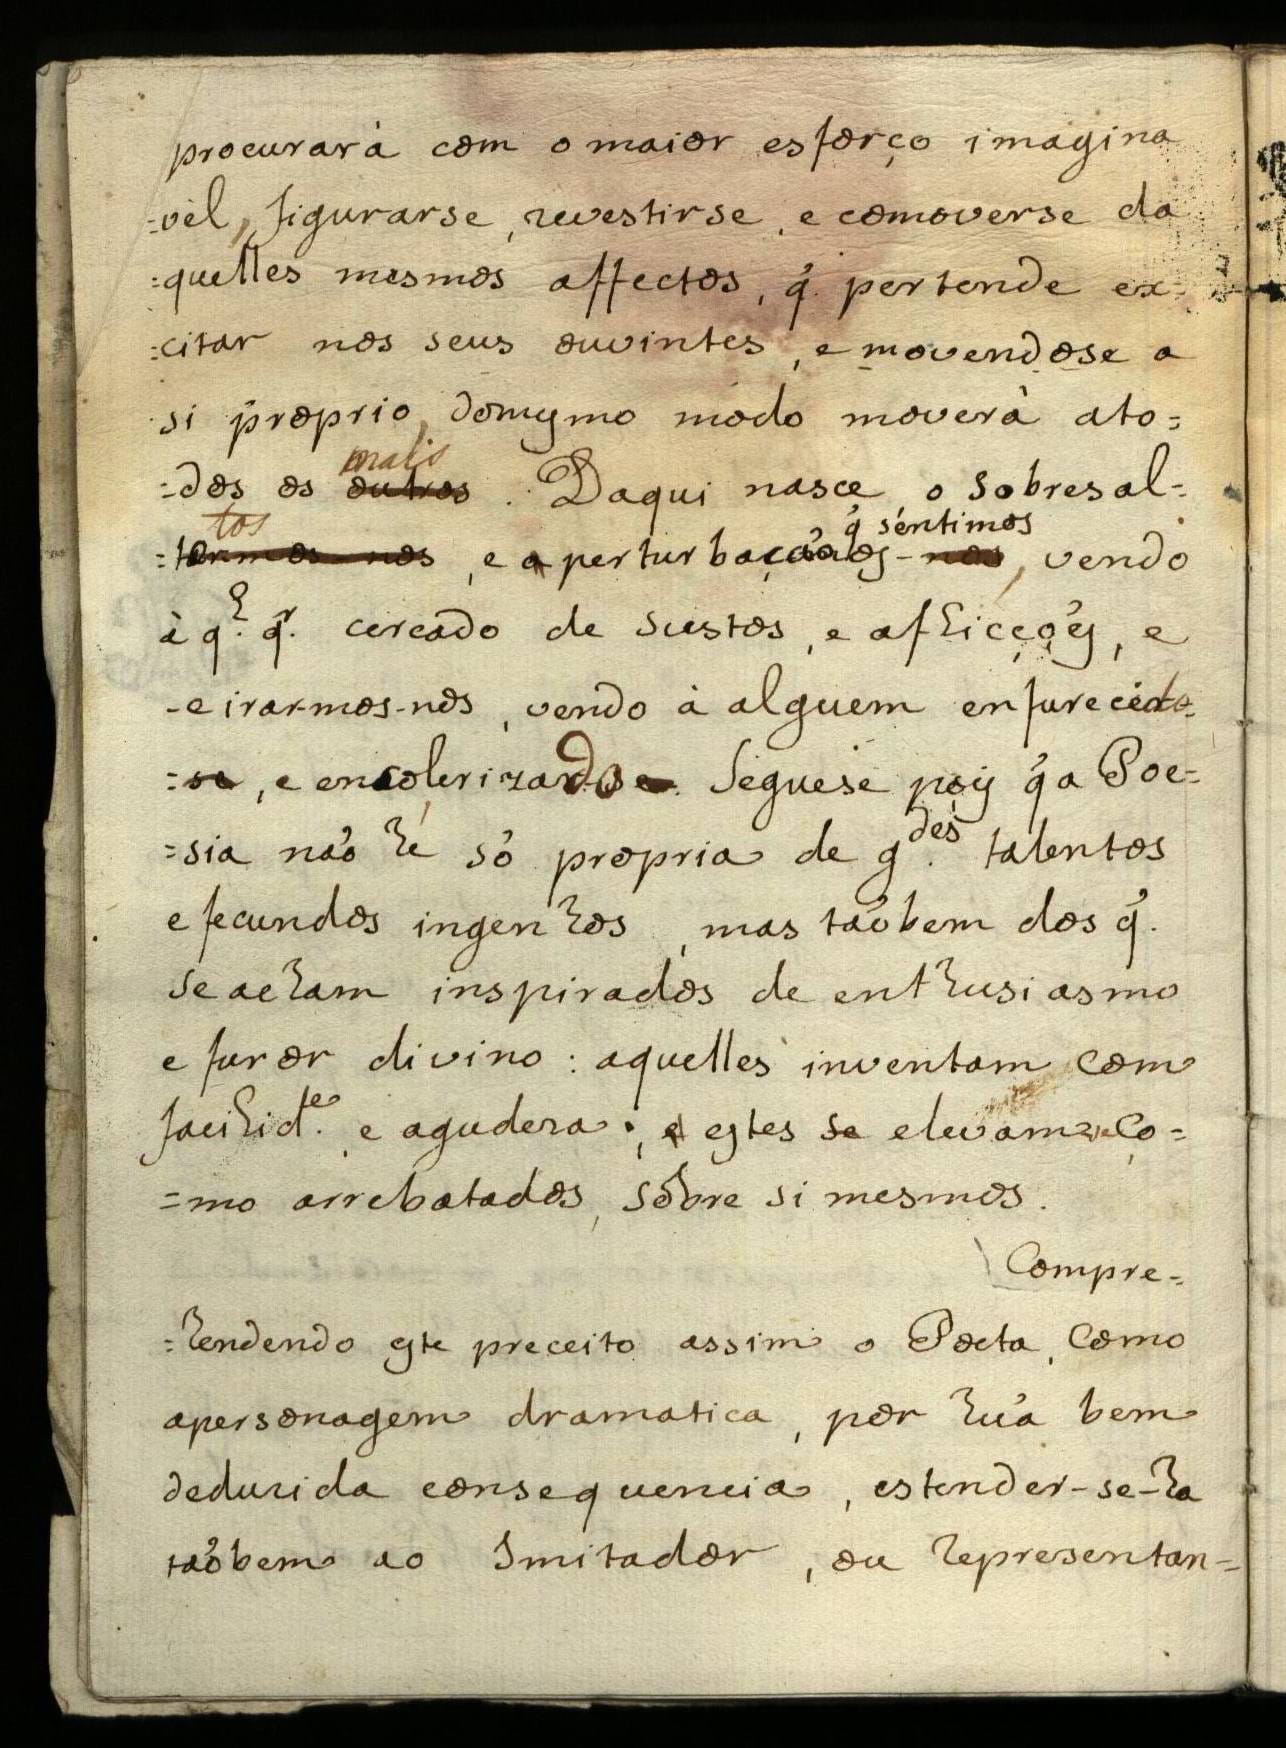 procurarà com o maior esforço imagina
=vel, figurarse, revestirse, e comoverse da
=quelles mesmos affectos, q̃. pertende ex=
=citar nos seus ouvintes, e movendose a
si proprio, domesmo modo moverà ato=
mais
=dos os outros. Daqui nasce o sobresal=
tos q̃ sentimos
=tarmos-nos, e a perturbação, vendo
à q.ᵐ q.ʳ cercado de sustos, e aflicções, e
-e irar-mos-nos, vendo à alguem enfurecido
=se, e encolerizado. Seguese pois q̃ a Poe=
=sia não hé só propria de g.des talentos
e fecundos ingenhos, mas taõbem dos q̃.
se acham inspirados de enthusiasmo
e furor divino: aquelles inventam com
facilid.e e agudeza; estes se elevam, co=
=mo arrebatados, sobre si mesmos.
Compre=
=hendendo este preceito assim o Poeta, como
apersonagem dramatica, por hũa bem
deduzida consequencia, estender-se-ha
taõbem ao Imitador, ou representan=